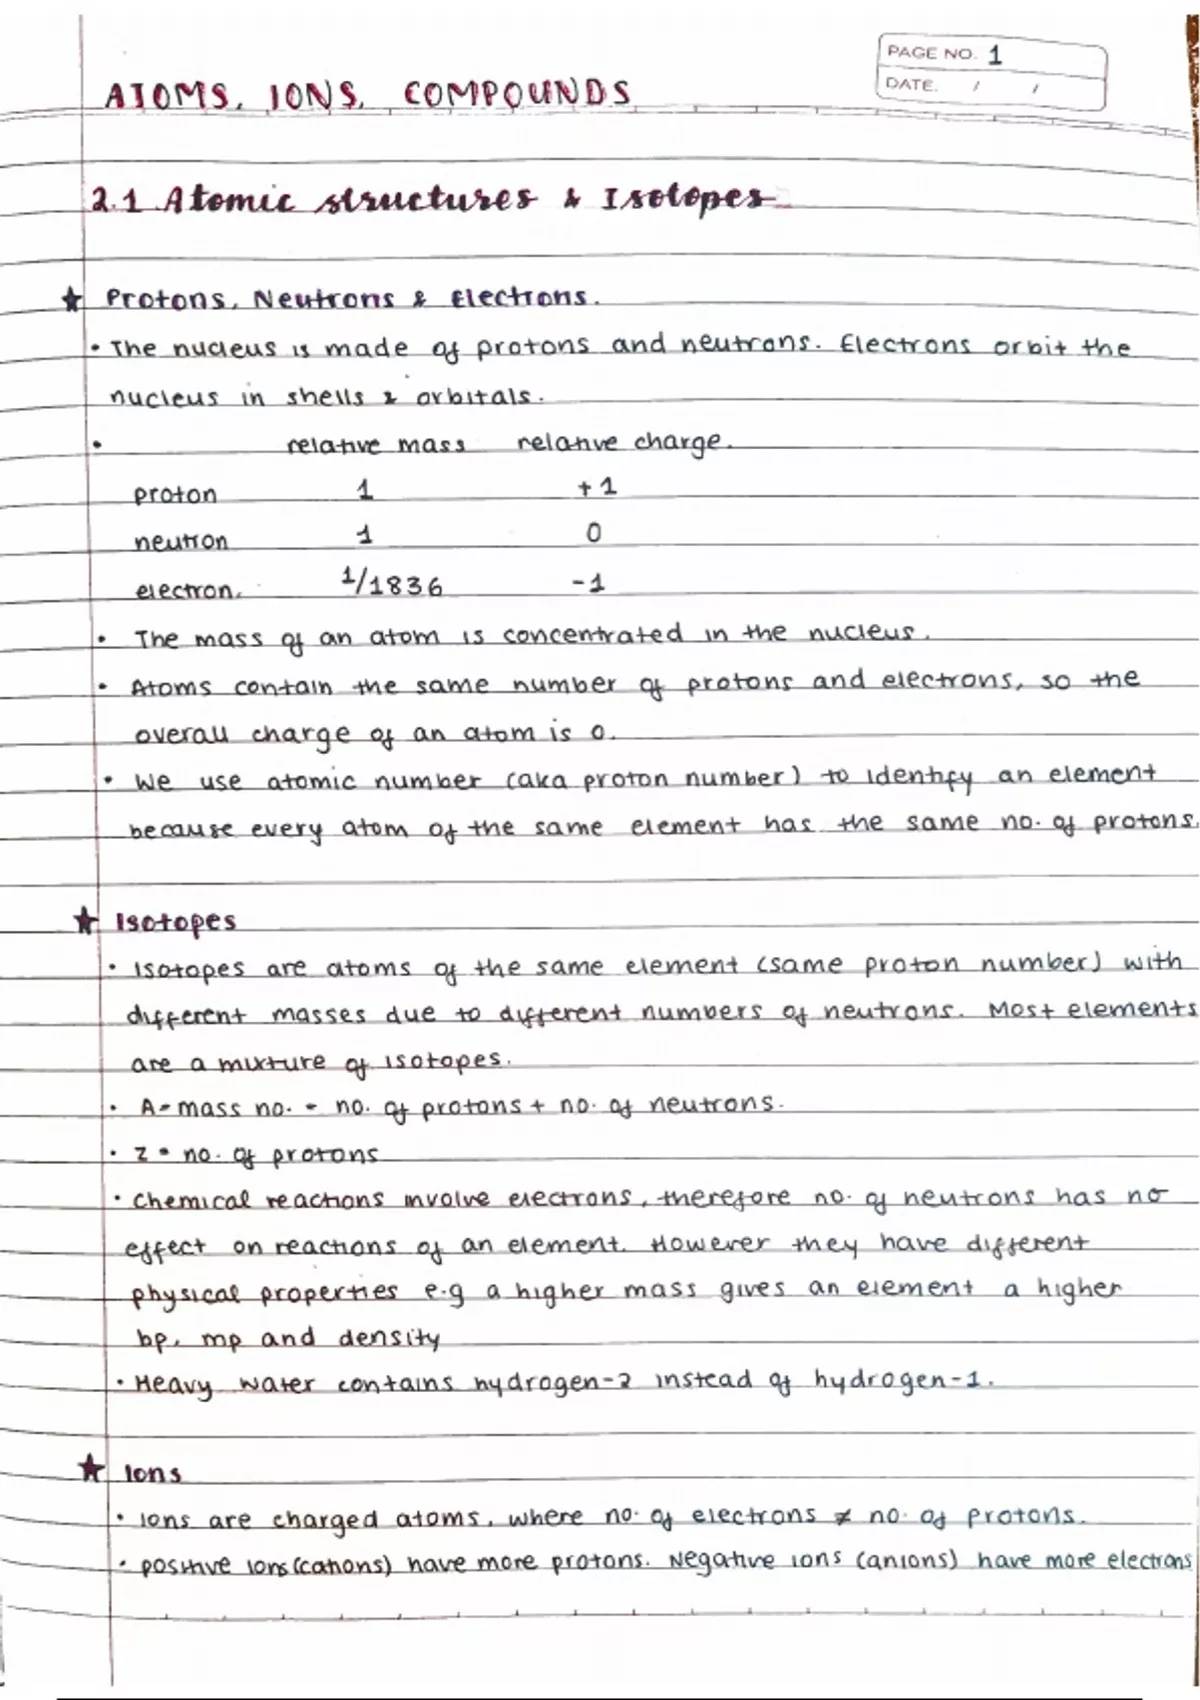 PAGE NO. 1
DATE. / /
ATOMS, IONS, COMPOUNDS
2.1 Atomic structures & Isotopes
★ Protons, Neutrons & Electrons.
• The nucleus is made of protons and neutrons. Electrons orbit the
nucleus in shells & orbitals.
• relative mass relative charge.
proton 1 +1
neutron 1 0
electron. 1/1836 -1
• The mass of an atom is concentrated in the nucleus.
• Atoms contain the same number of protons and electrons, so the
overall charge of an atom is 0.
• We use atomic number (aka proton number) to identify an element
because every atom of the same element has the same no. of protons.
★ Isotopes
• Isotopes are atoms of the same element (same proton number) with
different masses due to different numbers of neutrons. Most elements
are a mixture of isotopes.
• A = mass no. = no. of protons + no. of neutrons.
• Z = no. of protons
• Chemical reactions involve electrons, therefore no. of neutrons has no
effect on reactions of an element. However they have different
physical properties e.g a higher mass gives an element a higher
bp, mp and density
• Heavy water contains hydrogen-2 instead of hydrogen-1.
★ Ions
• Ions are charged atoms, where no. of electrons ≠ no. of protons.
• positive ions (cations) have more protons. Negative ions (anions) have more electrons